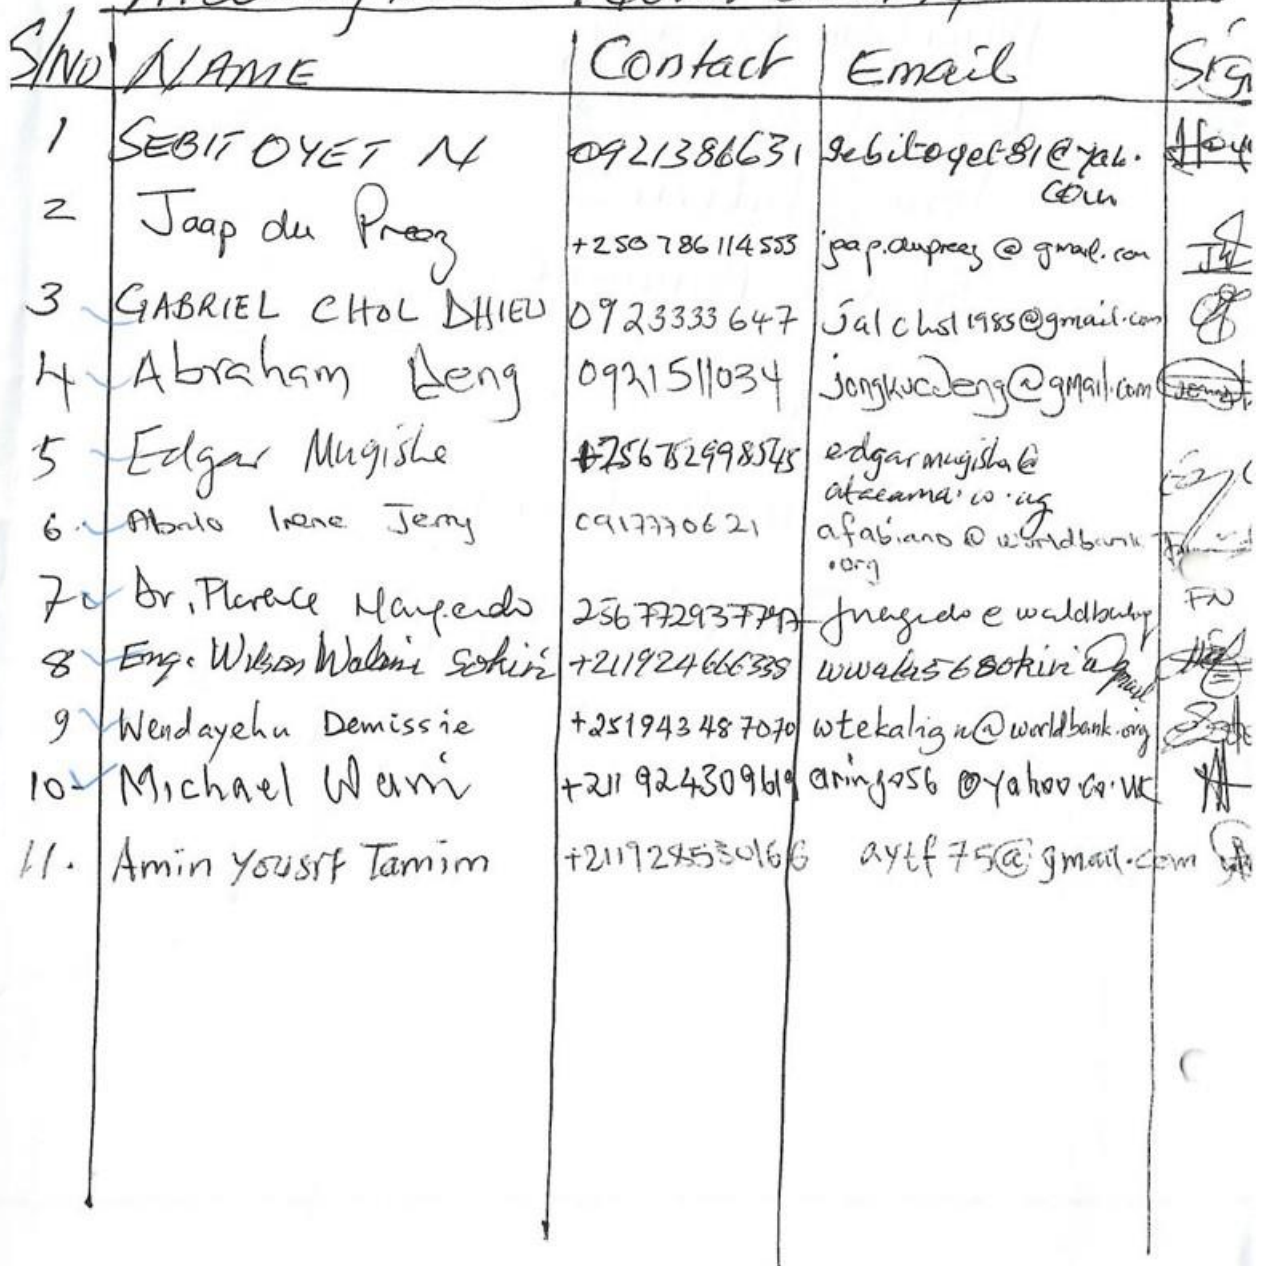 S/NO NAME Contact Email
1 SEBIT OYET N 0921386631 sebitoyet81@yah.
com
2 Jaap du Preez +250 786114553 jaap.dupreez@gmail.com
3 GABRIEL CHOL DHIEU 0923333647 jalchol1985@gmail.com
4 Abraham Deng 0921511034 jongkucdeng@gmail.com
5 Edgar Mugisha +256752998545 edgarmugisha@
atacama.co.ug
6. Irene Jerry 0917770621 afabiano@worldbank
.org
7. Dr. Florence
FN
8 Eng. Wilson Sokiri +211924666338
9 Wendayehu Demissie +251943487070 wtekalign@worldbank.org
10 Michael Wani +211924309619 aringo56@yahoo.co.uk
11. Amin Yousif Tamim +211928530166 aytf75@gmail.com